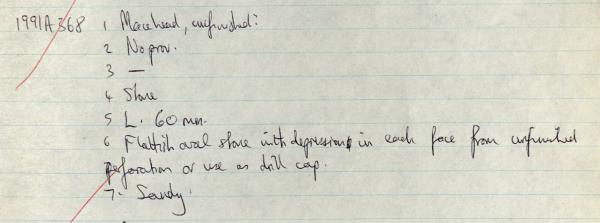 1991A368 1 Macehead, unfinished?
2 No prov.
3 —
4 Stone
5 L. 60 mm.
6 Flattish oval stone with depressions in each face from unfinished
perforation or use as drill cap.
7. Sandy.